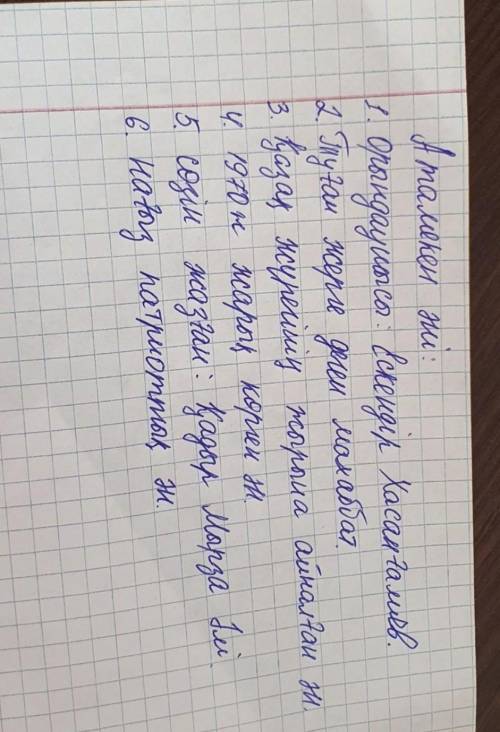 Атамекен әні:
1. Орындаушысы: Ескендір Хасанғалиев.
2. Туған жерге деген махаббат.
3. Қазақ жүрегінің жырына айналған ән.
4. 1970ж жарық көрген ән.
5. Сөзін жазған: Қадыр Мырза Әлі.
6. Нағыз патриоттық ән.